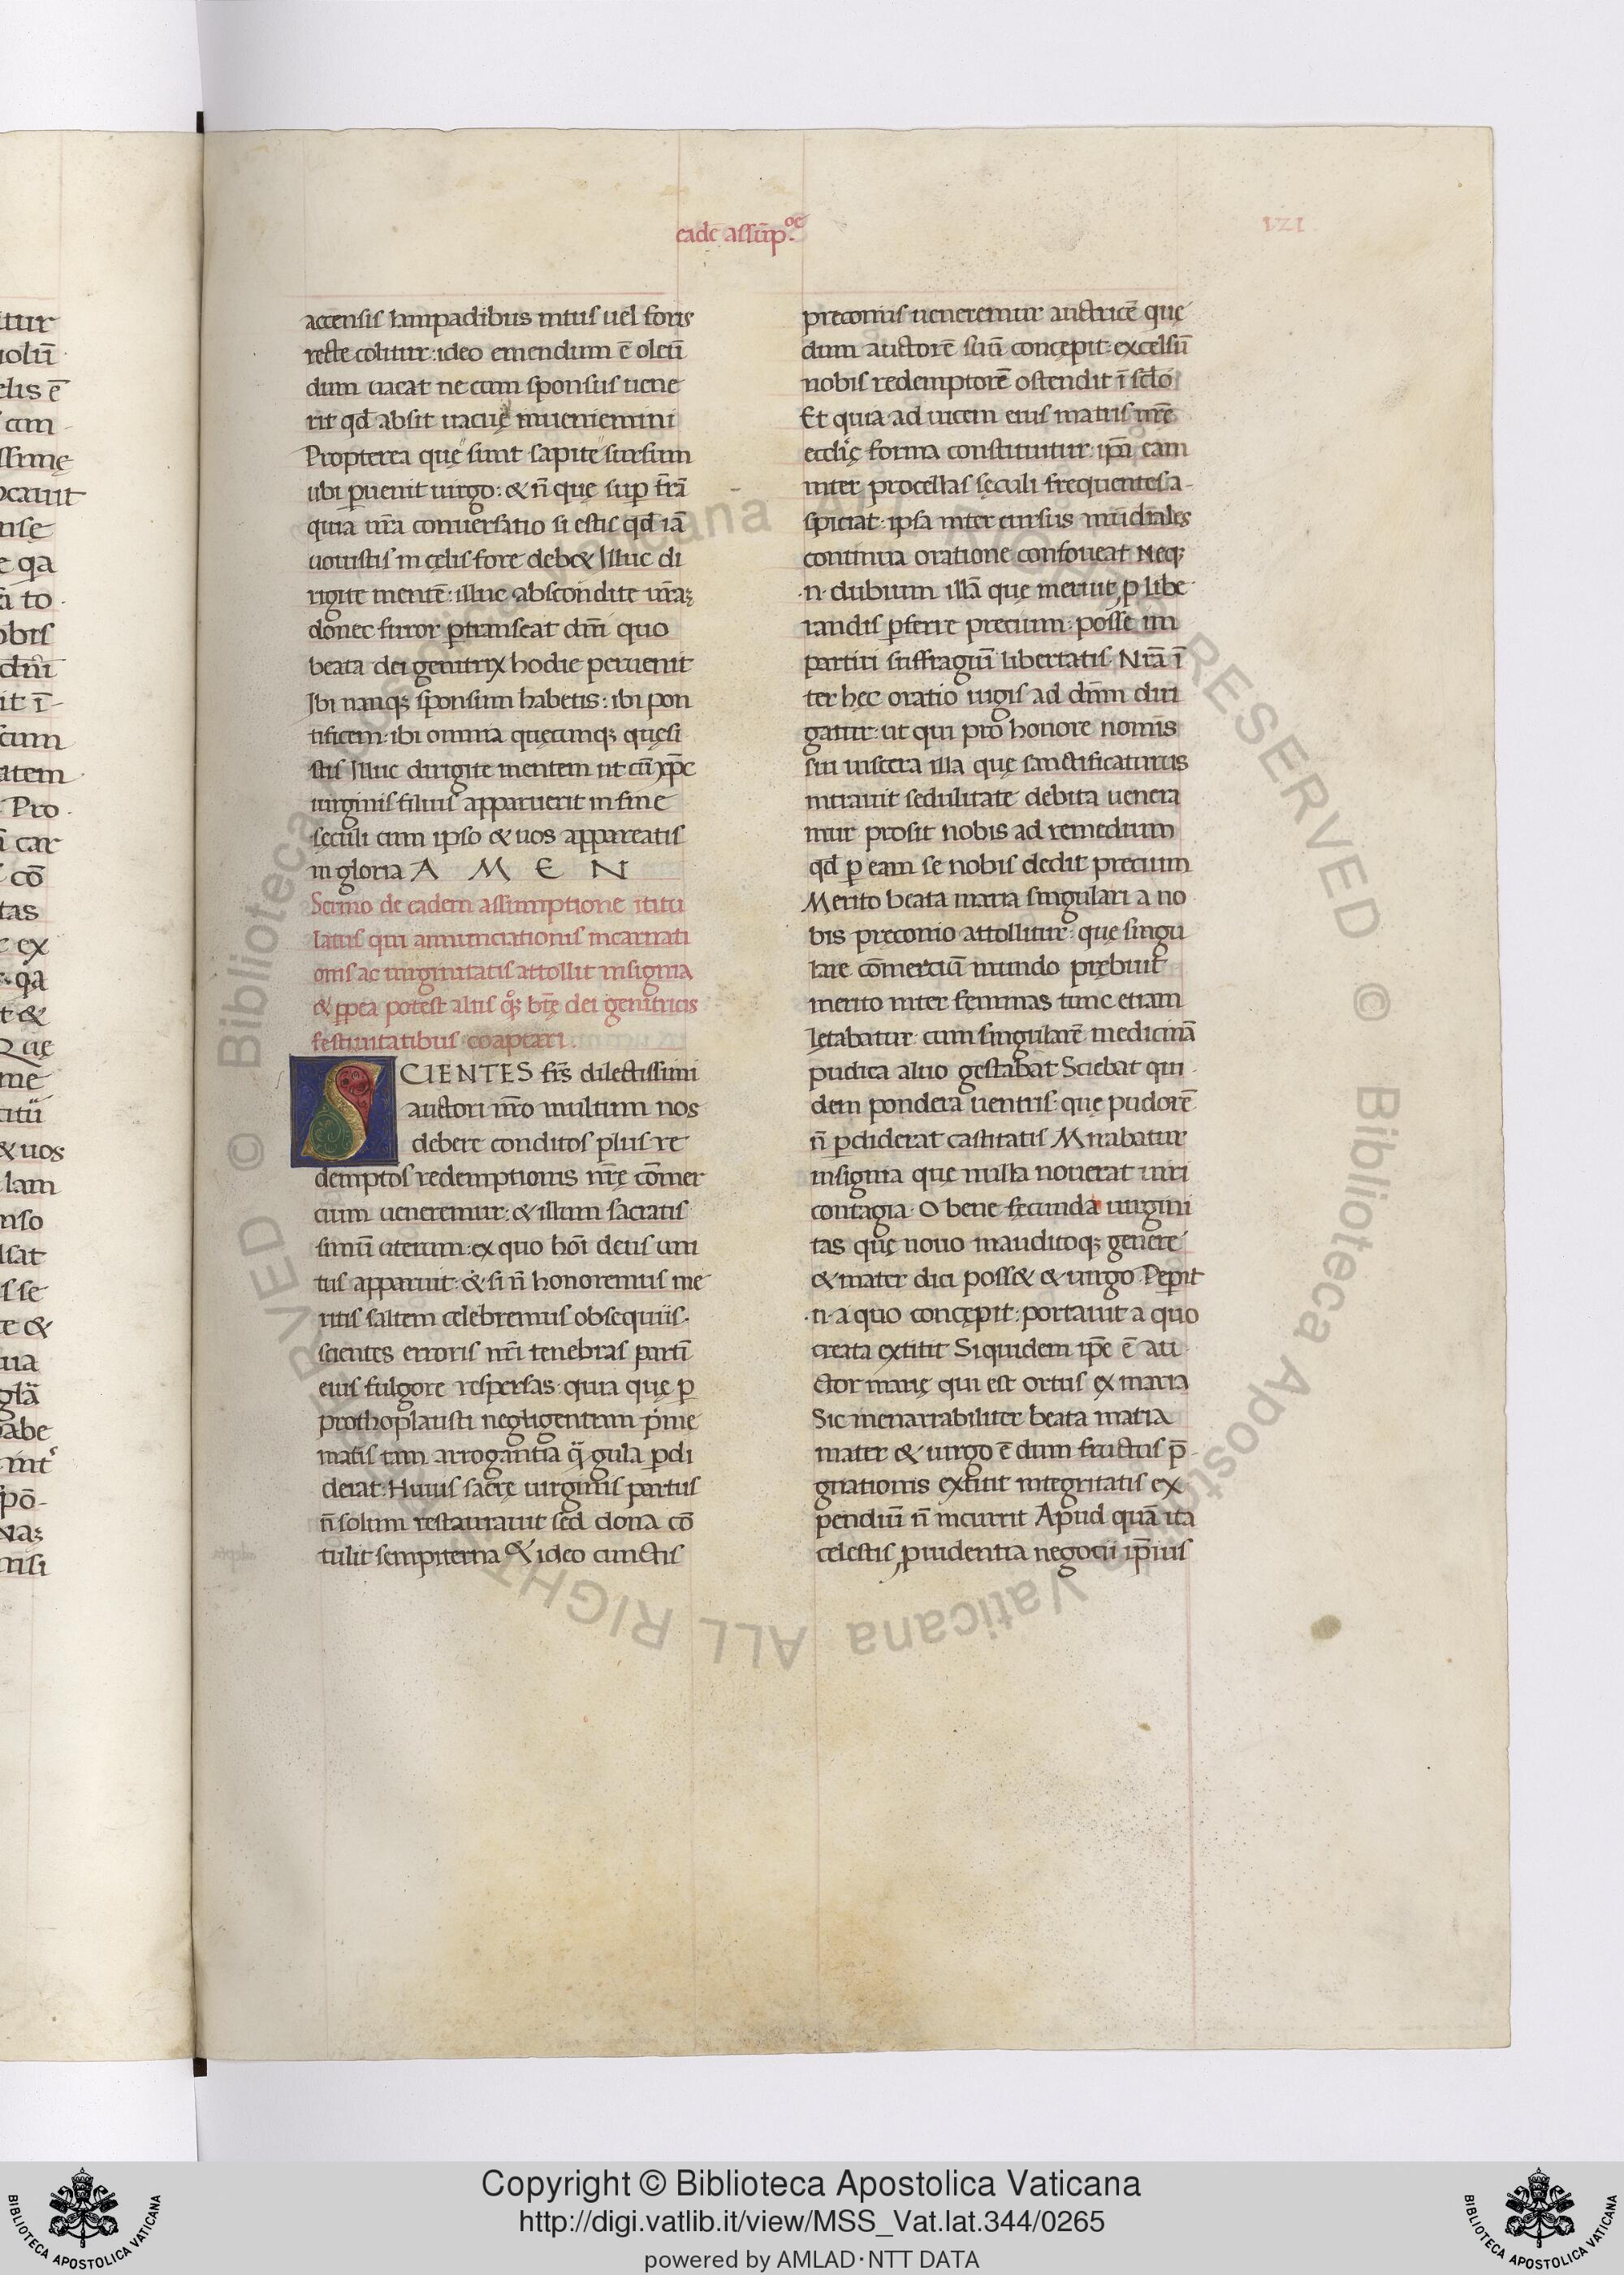 itur
uolū
elis ē
can
ssimę
ocauit
nse
e qa
ā to
obis
dn̄i
it ī
cum
atem
Pro
ā car
cō
tas
ex
qa
t &
Quę
me
titū
& uos
lam
nso
lsat
s se
te &
ua
gl̄a
abe
int
pō
nisi
eadē assūp.oē
121
accensis lampadibus intus uel foris
recte colitur: ideo emendum ē oleū
dum uacat ne cum sponsus uene
rit qd̄ absit uacuę inueniemini
Propterea quę sunt sapite sursum
ubi ꝑuenit uirgo: & n̄ quę suꝑ tr̄ā
quia ur̄a conuersatio si estis qd̄ iā
uouistis in cęlis fore deb& Illuc di
rigite mentē: illuc abscondite ur̄aꝫ
donec furor ꝑtranseat dn̄i quo
beata dei genitrix hodie peruenit
Ibi nanqꝫ sponsum habetis: ibi pon
tificem: ibi omnia quęcunqꝫ quęsi
stis Illuc dirigite mentem ut cū xp̄c
uirginis filius apparuerit in fine
sęculi cum ipso & uos appareatis
in gloria A M E N
Sermo de eadem assumptione ītitu
latus qui annunciationis incarnati
onis ac uirginitatis attollit insignia
& ꝓpea potest aliis qͦꝫ bt̄ę dei genitricis
festiuitatibus coaptari.
SCIENTES fr̄s dilectissimi
auctori nr̄o multum nos
debere conditos plus re
demptos redemptionis nr̄ę cōmer
cium ueneremur: & illum sacratis
simū uterum: ex quo hoī deus uni
tus apparuit: & si n̄ honoremus me
ritis saltem celebremus obsequiis.
scientes erroris nr̄i tenebras partū
eius fulgore respersas quia quę ꝑ
prothoplausti negligentiam pime
matis tam arrogantia q̄ gula ꝑdi
derat: Huius sacrę uirginis partus
n̄ solum restaurauit sed dona cō
tulit sempiterna & ideo cunctis
preconiis ueneremur auctricē quę
dum auctorē suū concępit: excelsū
nobis redemptorē ostendit ī sc̄lo
Et quia ad uicem eius matris nr̄ē
eccl̄ię forma constituitur: ip̄ā eam
inter procellas sęculi frequentes a-
spiciat: ipsa inter cursus mūdiales
continua oratione confoueat Neqꝫ
.n. dubium illā quę meruit ꝓ libe
randis ꝓferre precium: posse im
partiri suffragiū libertatis. Nr̄ā ī
ter hęc oratio iugis ad dn̄m diri
gatur: ut qui pro honore nomīs
sui uiscera illa quę sanctificaturus
intrauit sedulitate debita uenera
mur prosit nobis ad remedium
qd̄ ꝑ eam se nobis dedit precium
Merito beata maria singulari a no
bis pręconio attollitur: quę singu
lare cōmerciū mundo prębuit
merito inter feminas tunc etiam
lętabatur: cum singularē medicinā
pudica aluo gestabat Sciebat qui
dem pondera uentris: que pudorē
n̄ ꝑdiderat castitatis Mirabatur
insignia quę nulla nouerat uiri
contagia. O bene fęcunda uirgini
tas quę nouo inauditoqꝫ genere
& mater dici poss& & uirgo. Peꝑit
.n. a quo concępit: portauit a quo
creata extitit Siquidem ip̄e ē au
ctor marię qui est ortus ex maria
Sic inenarrabiliter beata maria
mater & uirgo ē dum fructus p̄
gnationis extitit integritatis ex
pendiū n̄ incurrit Apud quā ita
cęlestis ꝓuidentia negocii ip̄ius
© Biblioteca Apostolica Vaticana ALL RIGHTS RESERVED © Biblioteca Apostolica Vaticana ALL RIGHTS RESERVED
BIBLIOTECA APOSTOLICA VATICANA
Copyright © Biblioteca Apostolica Vaticana
http://digi.vatlib.it/view/MSS_Vat.lat.344/0265
powered by AMLAD·NTT DATA
BIBLIOTECA APOSTOLICA VATICANA